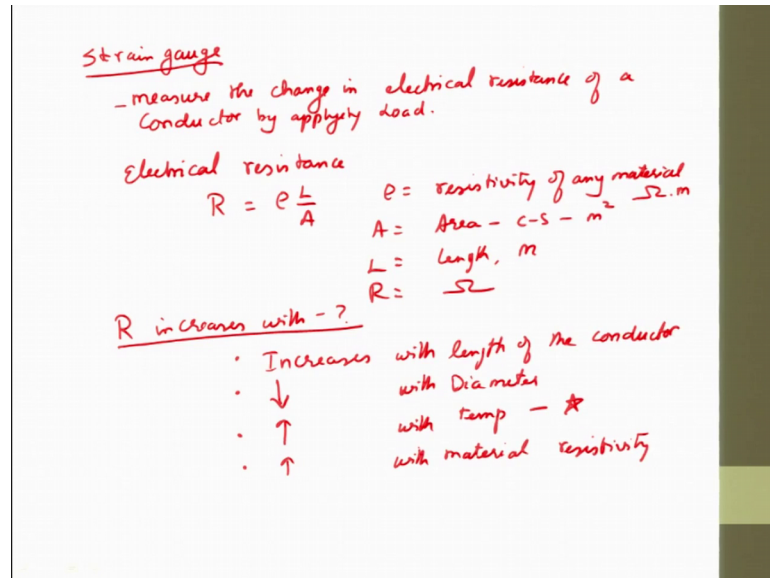 Strain gauge
- measure the change in electrical resistance of a
Conductor by applying Load.
Electrical resistance
R = ρ L/A
ρ = resistivity of any material Ω.m
A = Area - c-s - m²
L = Length, m
R = Ω
R increases with - ?
· Increases with length of the conductor
· ↓ with Diameter
· ↑ with temp - ☆
· ↑ with material resistivity